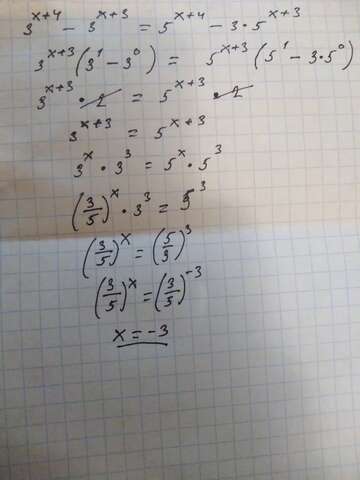 3^{x+4} - 3^{x+3} = 5^{x+4} - 3 · 5^{x+3}
3^{x+3} (3^1 - 3^0) = 5^{x+3} (5^1 - 3 · 5^0)
3^{x+3} · 2 = 5^{x+3} · 2
3^{x+3} = 5^{x+3}
3^x · 3^3 = 5^x · 5^3
(3/5)^x · 3^3 = 5^3
(3/5)^x = (5/3)^3
(3/5)^x = (3/5)^{-3}
x = -3